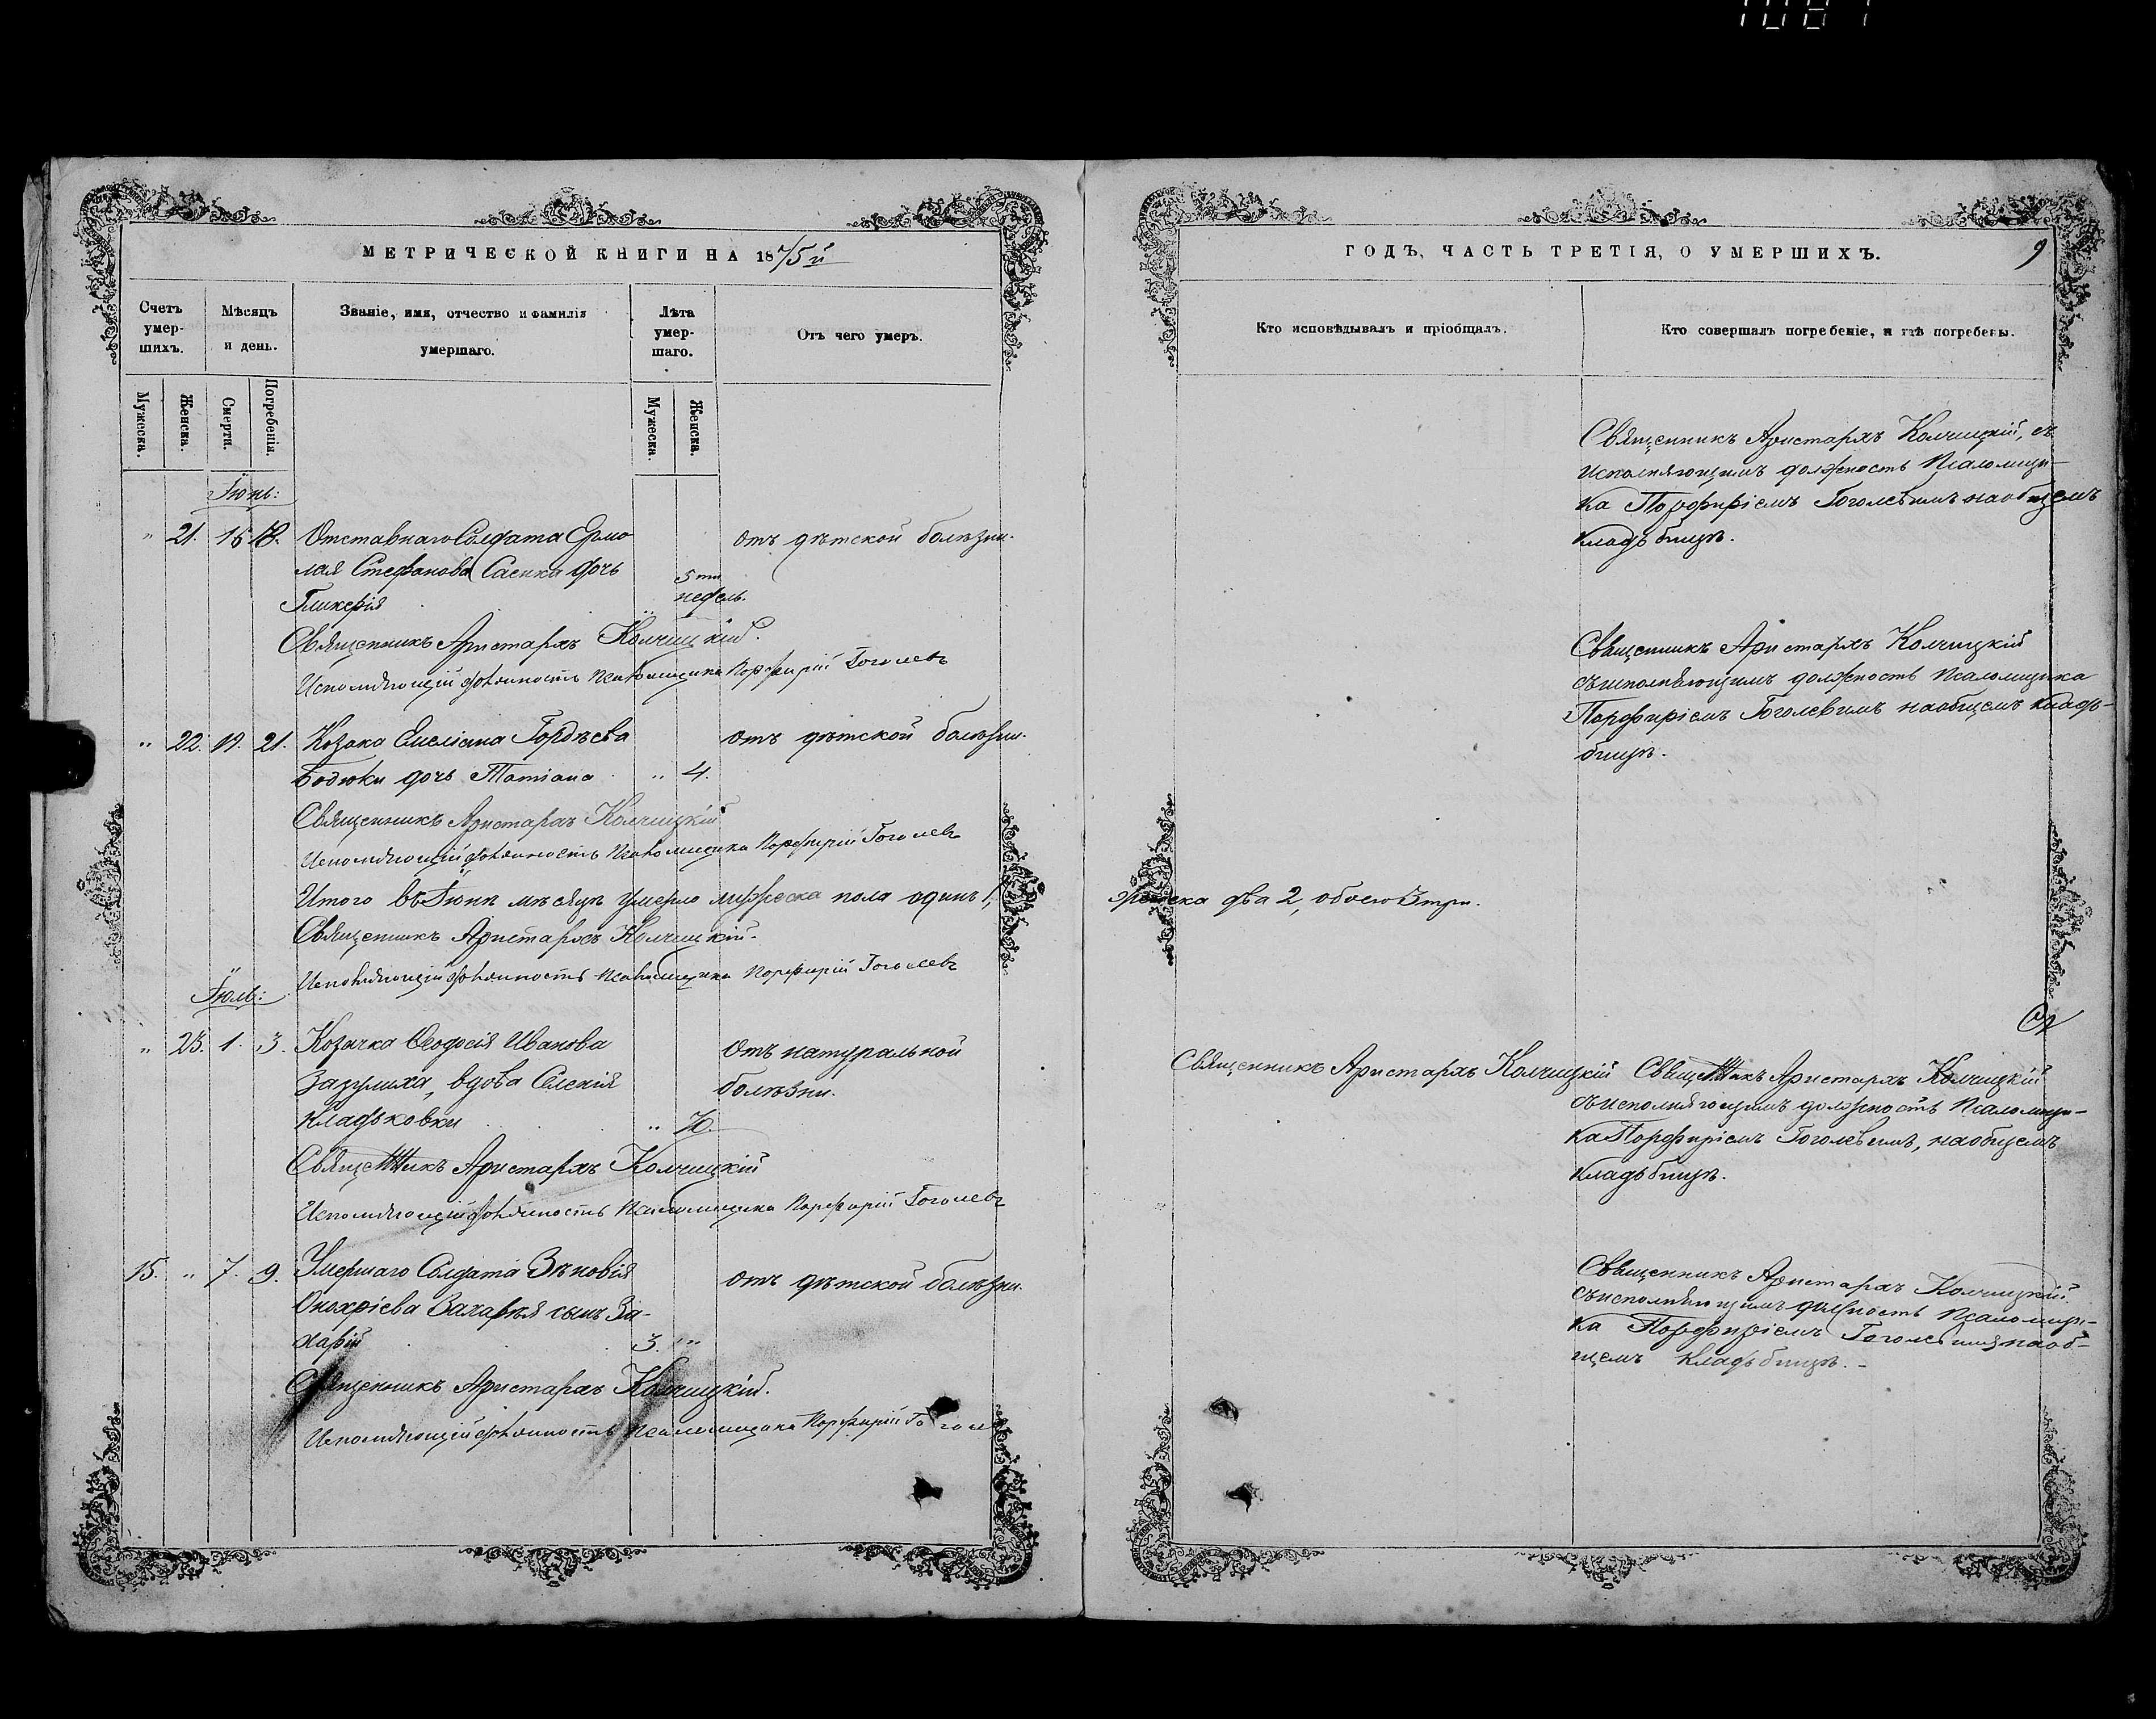 МЕТРИЧЕСКОЙ КНИГИ НА 1875й
Счетъ умер-шихъ.
Мѣсяцъ и день.
Званіе, имя, отчество и фамилія умершаго.
Лѣта умер-шаго.
Отъ чего умеръ.
Мужеска.
Женска.
Смерти.
Погребенія.
Мужеска.
Женска.
Іюнь:
" 21. 15 18. Отставнаго Солдата Ермо отъ дѣтской болѣзни.
лая Стефанова Саенка дочь 5ти
Гликерія недель.
Священникъ Аристархъ Колчицкій.
Исполняющій должность Псаломщика Порфирій Гоголевъ
" 22. 19. 21. Козака Емеліана Гордѣева отъ дѣтской болѣзни.
Бодюки дочь Татіана " 4.
Священникъ Аристархъ Колчицкій
Исполняющій должность Псаломщика Порфирій Гоголевъ
Итого въ Іюнѣ мѣсяцѣ умерло мужеска пола одинъ 1,
Священникъ Аристархъ Колчицкій.
Исполняющій должность Псаломщика Порфирій Гоголевъ
Іюль:
" 23. 1. 3. Козачка Ѳеодосія Иванова отъ натуральной
вдова болѣзни.
Кладьковки "
Священникъ Аристархъ Колчицкій
Исполняющій должность Псаломщика Порфирій Гоголевъ
15. " 7. 9. Умершаго Солдата Зѣновія отъ дѣтской болѣзни.
сынъ За-
харій 3. "
Священникъ Аристархъ Колчицкій.
Исполняющій должность Псаломщика Порфирій Гогол
ГОДЪ, ЧАСТЬ ТРЕТІЯ, О УМЕРШИХЪ.
9
Кто исповѣдывалъ и пріобщалъ.
Кто совершалъ погребеніе, и гдѣ погребены.
Священникъ Аристархъ Колчицкій, съ
исполняющимъ должность Псаломщи-
ка Порфиріемъ Гоголевимъ на общемъ
кладьбищѣ.
Священникъ Аристархъ Колчицкій
съ исполняющимъ должность Псаломщика
Порфиріемъ Гоголевимъ на общемъ кладь-
бищѣ.
женска два 2, обоего 3 три.
Священникъ Аристархъ Колчицкій
Священникъ Аристархъ Колчицкій
съ исполняющимъ должность Псаломщи-
ка Порфиріемъ Гоголевимъ, на общемъ
кладьбищѣ.
Священникъ Аристархъ Колчицкій.
съ исполняющимъ должность Псаломщи-
ка Порфиріемъ Гоголевимъ на об-
щемъ кладьбищѣ.-